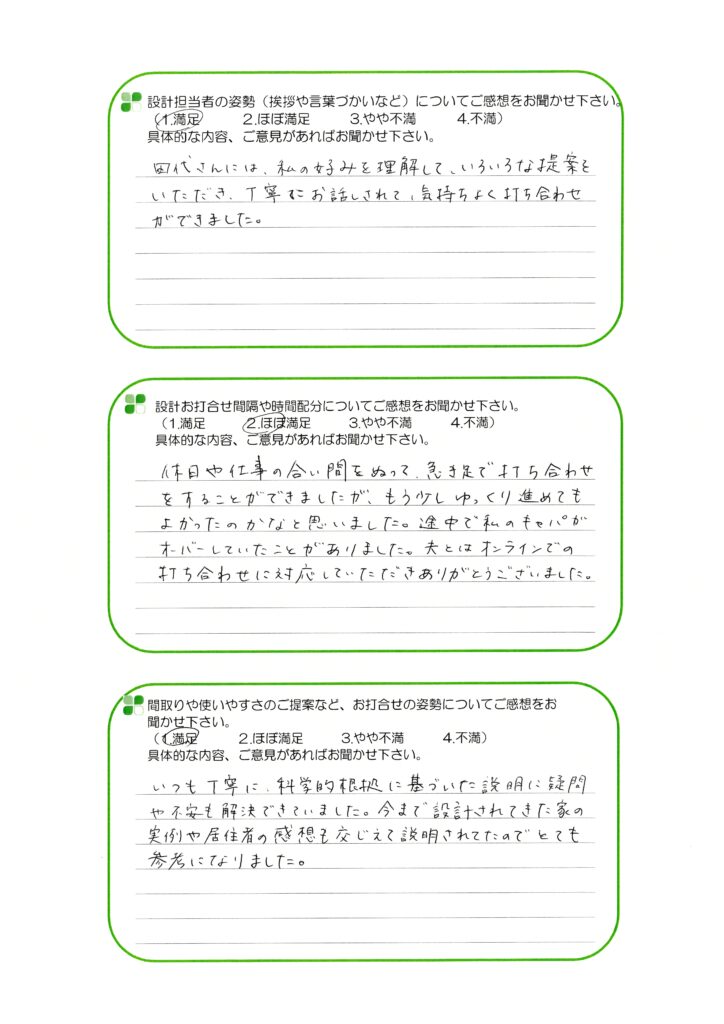 設計担当者の姿勢（挨拶や言葉づかいなど）についてご感想をお聞かせ下さい。
（1.満足　2.ほぼ満足　3.やや不満　4.不満）
具体的な内容、ご意見があればお聞かせ下さい。
田代さんには、私の好みを理解して、いろいろな提案を
いただき、丁寧にお話しされて、気持ちよく打ち合わせ
ができました。
設計お打合せ間隔や時間配分についてご感想をお聞かせ下さい。
（1.満足　2.ほぼ満足　3.やや不満　4.不満）
具体的な内容、ご意見があればお聞かせ下さい。
休日や仕事の合い間をぬって、急き足で打ち合わせ
をすることができましたが、もう少しゆっくり進めても
よかったのかなと思いました。途中で私のキャパが
オーバーしていたことがありました。夫とはオンラインでの
打ち合わせに対応していただきありがとうございました。
間取りや使いやすさのご提案など、お打合せの姿勢についてご感想をお
聞かせ下さい。
（1.満足　2.ほぼ満足　3.やや不満　4.不満）
具体的な内容、ご意見があればお聞かせ下さい。
いつも丁寧に、科学的根拠に基づいた説明に疑問
や不安も解決できていました。今まで設計されてきた家の
実例や居住者の感想も交じえて説明されてたのでとても
参考になりました。